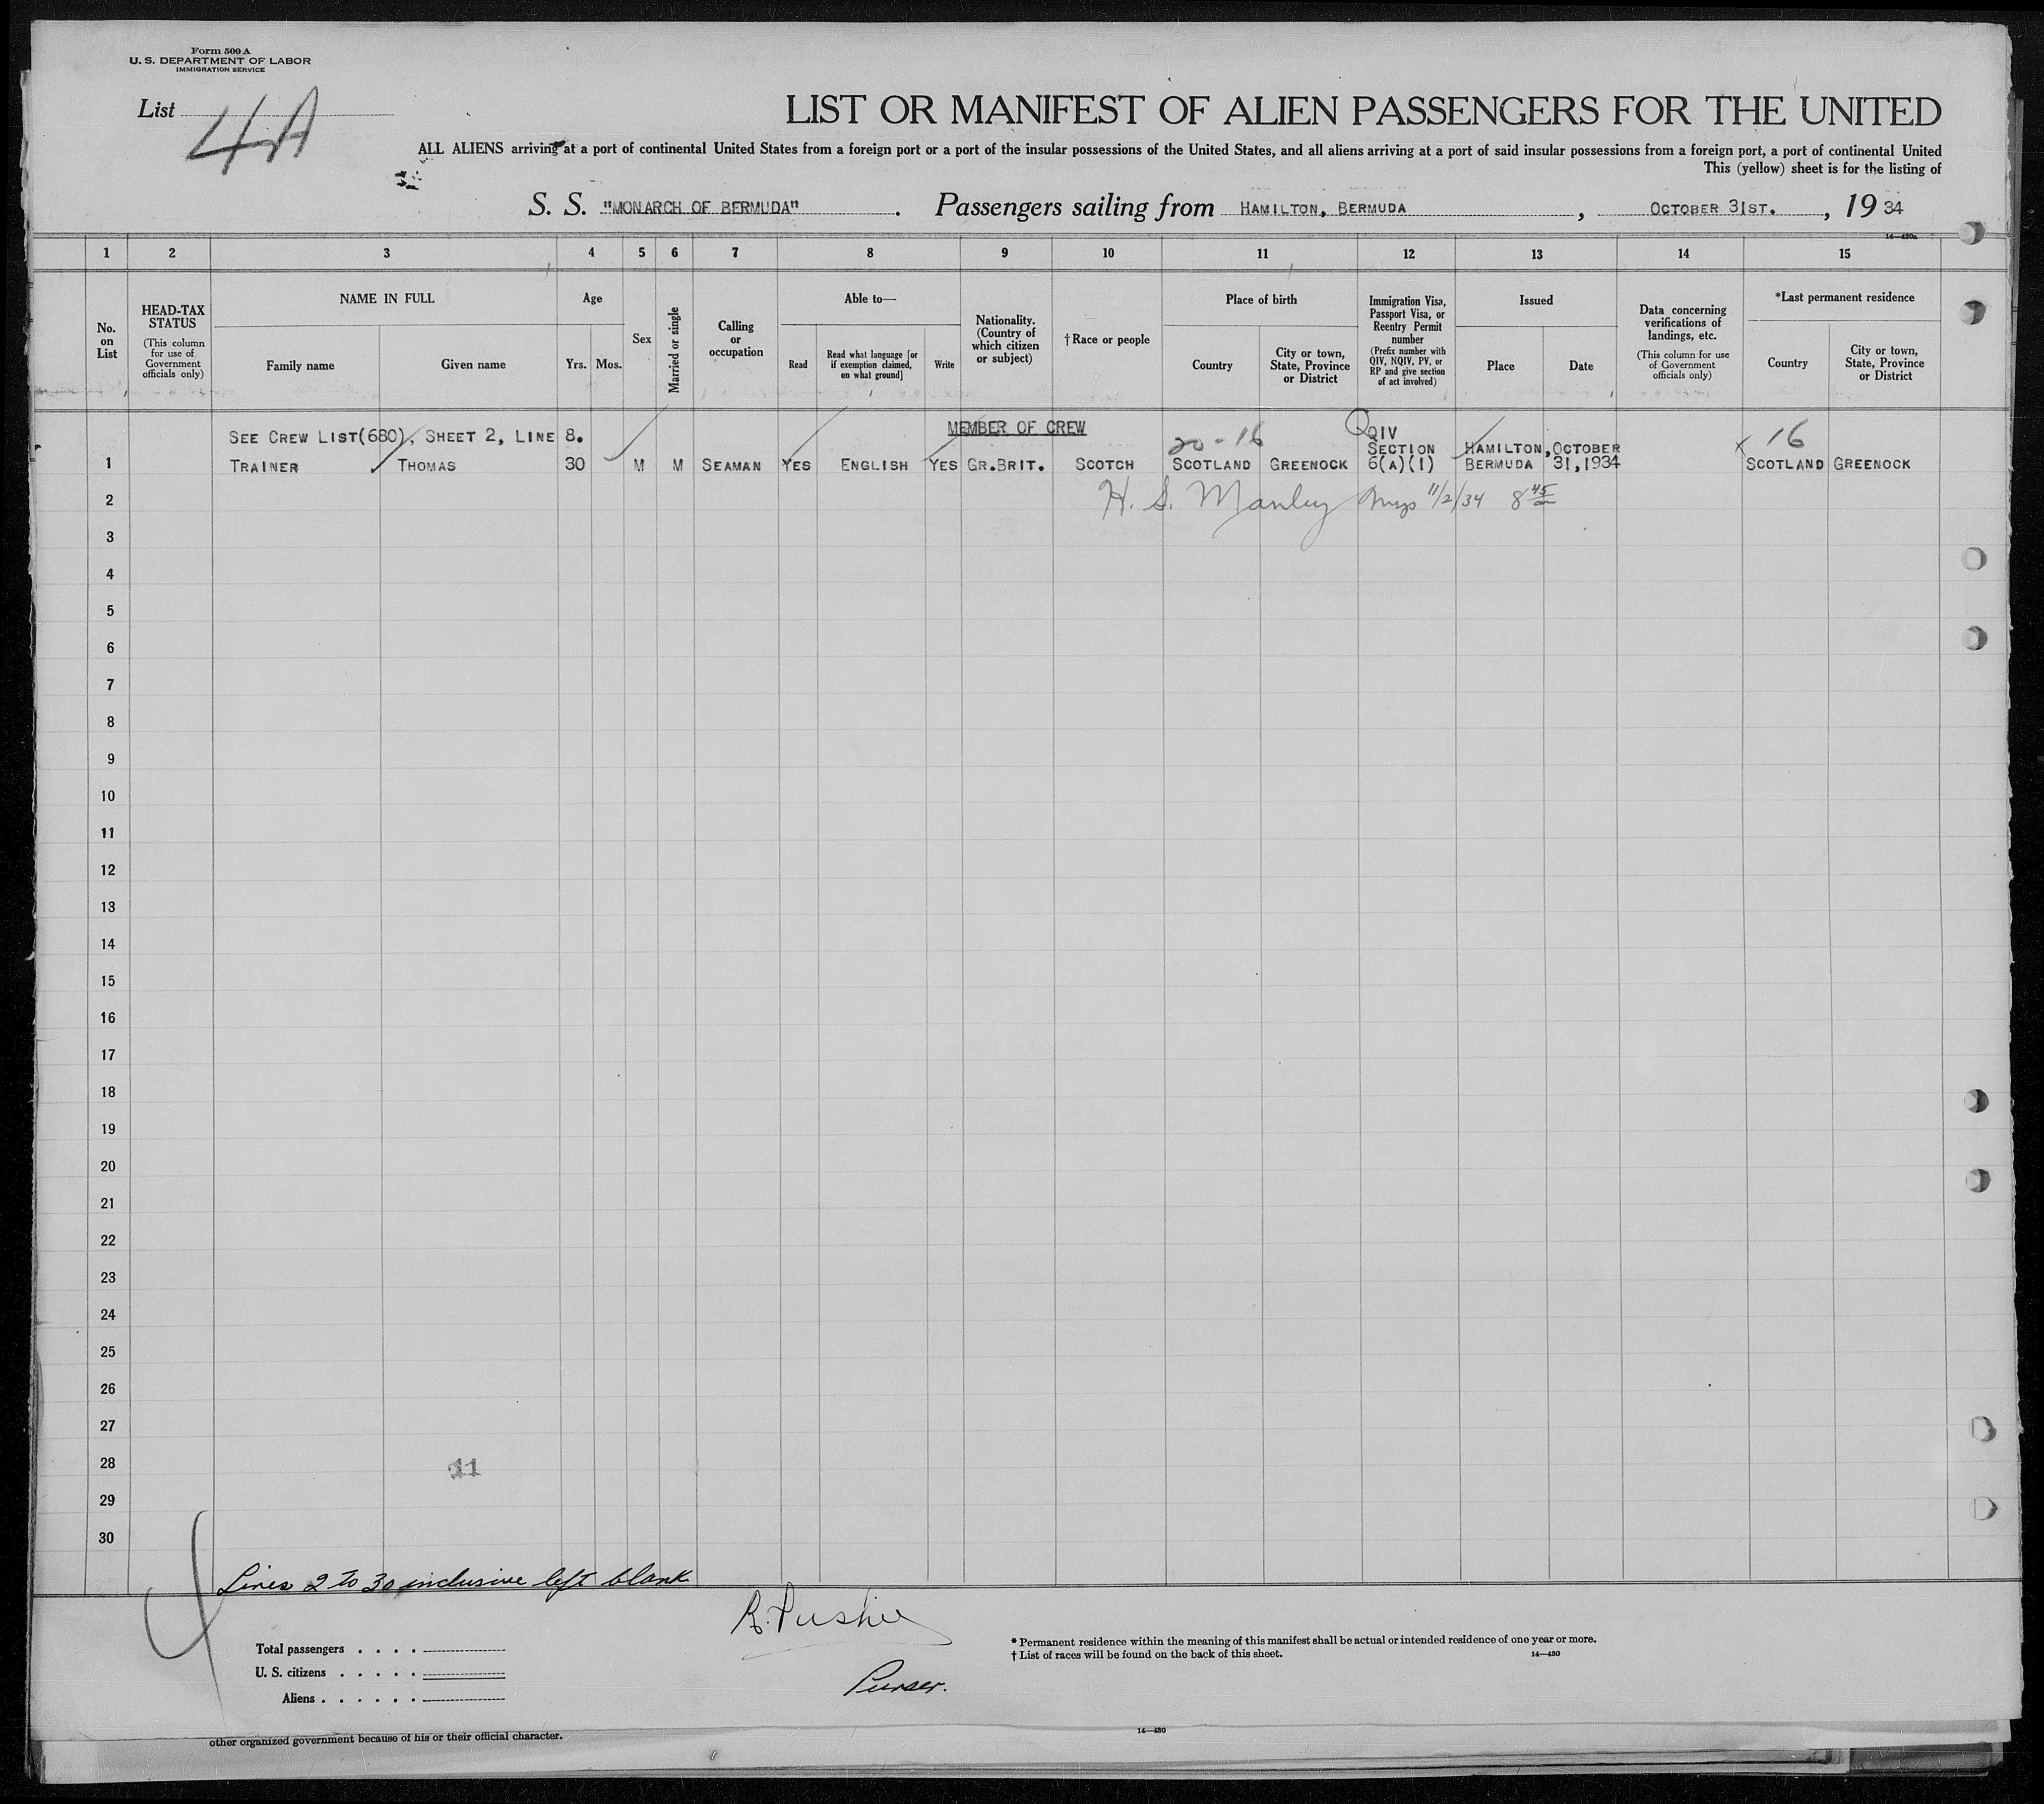 Form 500 A
U. S. DEPARTMENT OF LABOR
IMMIGRATION SERVICE
List 4A
LIST OR MANIFEST OF ALIEN PASSENGERS FOR THE UNITED
ALL ALIENS arriving at a port of continental United States from a foreign port or a port of the insular possessions of the United States, and all aliens arriving at a port of said insular possessions from a foreign port, a port of continental United
This (yellow) sheet is for the listing of
S. S. "MONARCH OF BERMUDA" . Passengers sailing from HAMILTON, BERMUDA , OCTOBER 31ST. , 19 34
14—430a
1 2 3 4 5 6 7 8 9 10 11 12 13 14 15
No. on List
HEAD-TAX STATUS
(This column for use of Government officials only)
NAME IN FULL
Family name
Given name
Age
Yrs. Mos.
Sex
Married or single
Calling or occupation
Able to—
Read
Read what language [or if exemption claimed, on what ground]
Write
Nationality. (Country of which citizen or subject)
†Race or people
Place of birth
Country
City or town, State, Province or District
Immigration Visa, Passport Visa, or Reentry Permit number
(Prefix number with QIV, NQIV, PV, or RP and give section of act involved)
Issued
Place
Date
Data concerning verifications of landings, etc.
(This column for use of Government officials only)
*Last permanent residence
Country
City or town, State, Province or District
MEMBER OF CREW
SEE CREW LIST(680), SHEET 2, LINE 8.
20-16
Q QIV
16
SECTION HAMILTON, OCTOBER
1 TRAINER THOMAS 30 M M SEAMAN YES ENGLISH YES GR.BRIT. SCOTCH SCOTLAND GREENOCK 6(A)(1) BERMUDA 31,1934 X SCOTLAND GREENOCK
2 H. S. Manley 11/2/34 8 45
3
4
5
6
7
8
9
10
11
12
13
14
15
16
17
18
19
20
21
22
23
24
25
26
27
28 11
29
30
Lines 2 to 30 inclusive left blank
Purser.
Total passengers . . . .
U. S. citizens . . . . .
Aliens . . . . . .
* Permanent residence within the meaning of this manifest shall be actual or intended residence of one year or more.
† List of races will be found on the back of this sheet.
14—430
other organized government because of his or their official character.
14—430